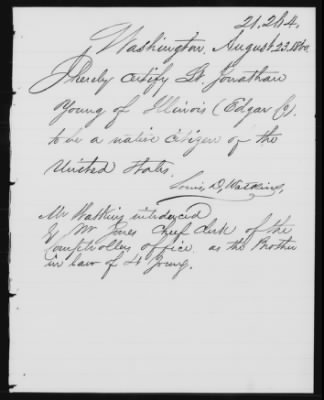 21,264.
Washington, August 23.
I hereby certify Lt. Jonathan
Young of Illinois (Edgar Co).
to be a native Citizen of the
United States.
Louis D. Watkins.
Mr Watkins introduced
by Mr Jones Chief clerk of the
Comptrollers office, as the Brother
in law of Lt Young.